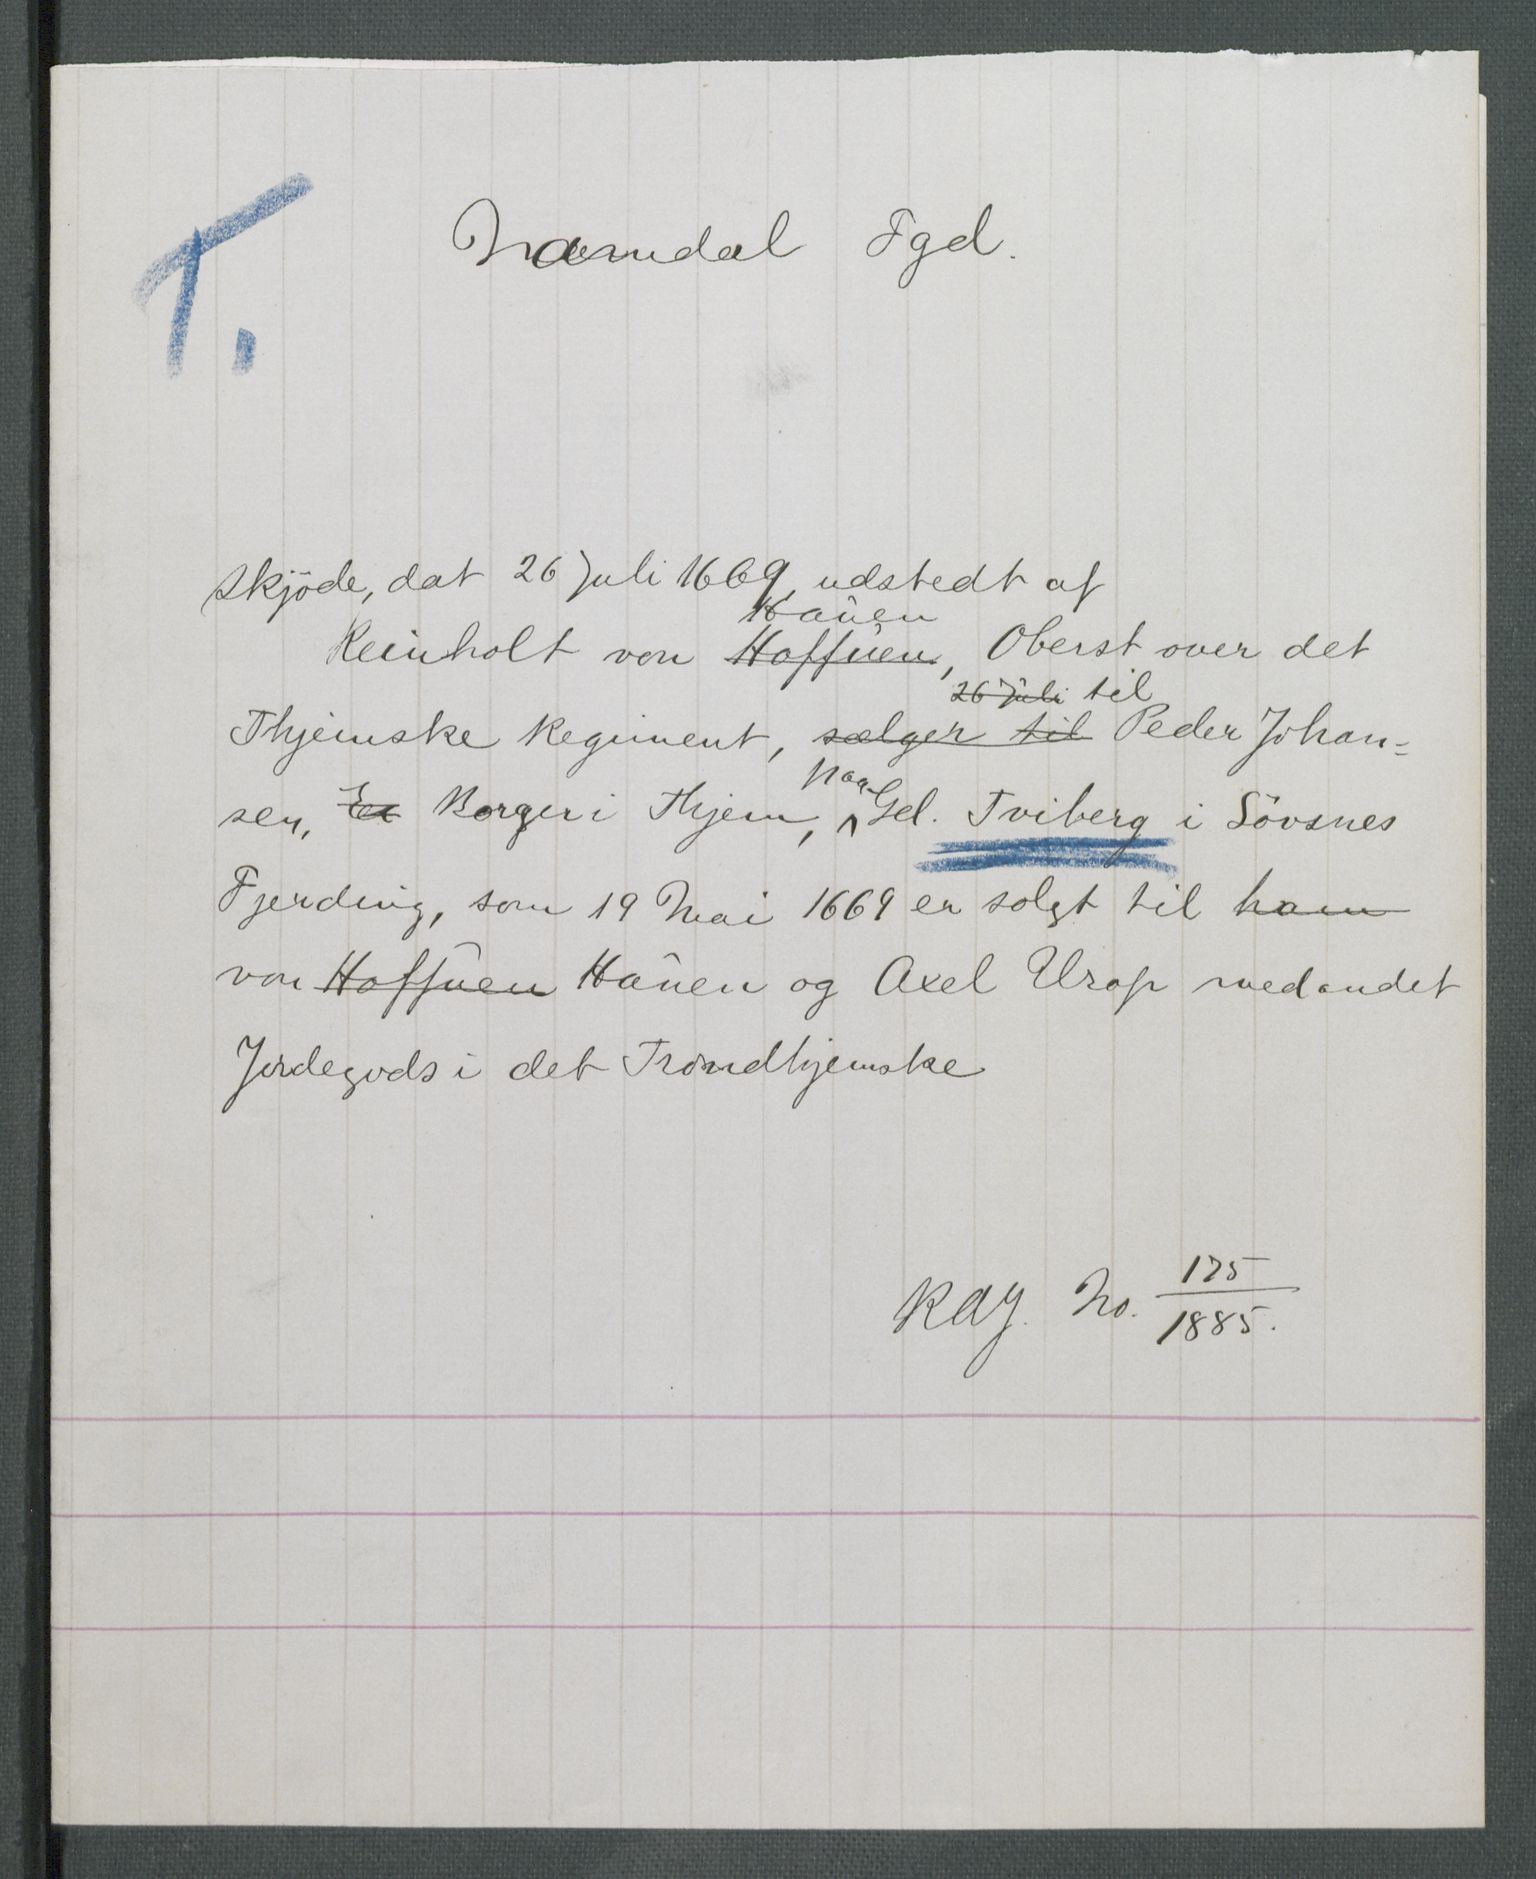 T.
Namdal Fgd.
Skjöde, dat 26 Juli 1669, udstedt af
Haûen
Reinholt von Hoffûen, Oberst over det
26 Juli til
Thjemske Regiment, sælger til Peder Johan=
paa
sen, Borger i Thjem, Gd. Tviberg i Sövsnes
Fjerding, som 19 Mai 1669 er solgt til ham
von Hoffûen Haûen og Axel Urop med andet
Jordegods i det Trondhjemske
RAJ. No. 175
1885.